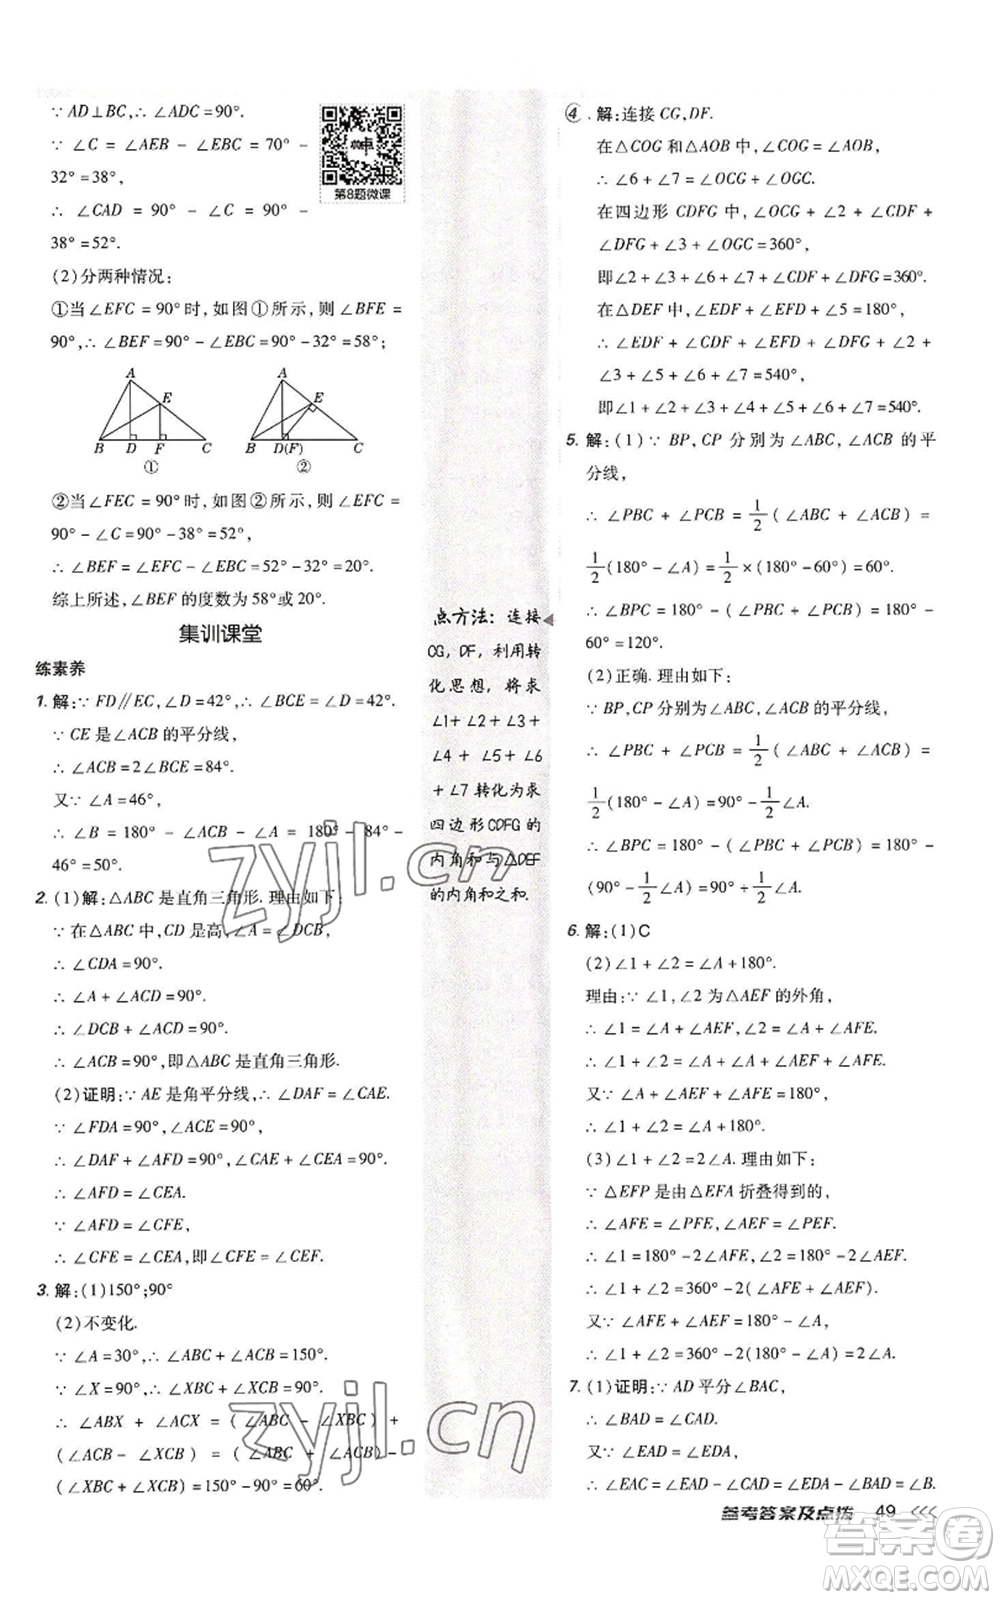 ∵ AD⊥BC,∴ ∠ADC=90°.
∵ ∠C=∠AEB-∠EBC=70°-
32°=38°,
∴ ∠CAD=90°-∠C=90°-
38°=52°.
第8题微课
(2)分两种情况:
①当∠EFC=90°时,如图①所示,则∠BFE=
90°,∴ ∠BEF=90°-∠EBC=90°-32°=58°;
A E B D F C
①
A E B D(F) C
②
②当∠FEC=90°时,如图②所示,则∠EFC=
90°-∠C=90°-38°=52°,
∴ ∠BEF=∠EFC-∠EBC=52°-32°=20°.
综上所述,∠BEF的度数为58°或20°.
集训课堂
练素养
1. 解:∵ FD∥EC,∠D=42°,∴ ∠BCE=∠D=42°.
∵ CE是∠ACB的平分线,
∴ ∠ACB=2∠BCE=84°.
又∵ ∠A=46°,
∴ ∠B=180°-∠ACB-∠A=180°-84°-
46°=50°.
2. (1)解:△ABC是直角三角形.理由如下:
∵ 在△ABC中,CD是高,∠A=∠DCB,
∴ ∠CDA=90°.
∴ ∠A+∠ACD=90°.
∴ ∠DCB+∠ACD=90°.
∴ ∠ACB=90°,即△ABC是直角三角形.
(2)证明:∵ AE是角平分线,∴ ∠DAF=∠CAE.
∵ ∠FDA=90°,∠ACE=90°,
∴ ∠DAF+∠AFD=90°,∠CAE+∠CEA=90°.
∴ ∠AFD=∠CEA.
∵ ∠AFD=∠CFE,
∴ ∠CFE=∠CEA,即∠CFE=∠CEF.
3. 解:(1)150°;90°
(2)不变化.
∵ ∠A=30°,∴ ∠ABC+∠ACB=150°.
∵ ∠X=90°,∴ ∠XBC+∠XCB=90°.
∴ ∠ABX+∠ACX=(∠ABC-∠XBC)+
(∠ACB-∠XCB)=(∠ABC+∠ACB)-
(∠XBC+∠XCB)=150°-90°=60°.
点方法:连接
CG,DF,利用转
化思想,将求
∠1+∠2+∠3+
∠4+∠5+∠6
+∠7转化为求
四边形CDFG的
内角和与△DEF
的内角和之和.
④. 解:连接CG,DF.
在△COG和△AOB中,∠COG=∠AOB,
∴ ∠6+∠7=∠OCG+∠OGC.
在四边形CDFG中,∠OCG+∠2+∠CDF+
∠DFG+∠3+∠OGC=360°,
即∠2+∠6+∠7+∠3+∠CDF+∠DFG=360°.
在△DEF中,∠EDF+∠EFD+∠5=180°,
∴ ∠EDF+∠CDF+∠EFD+∠DFG+∠2+
∠3+∠5+∠6+∠7=540°,
即∠1+∠2+∠3+∠4+∠5+∠6+∠7=540°.
5. 解:(1)∵ BP,CP分别为∠ABC,∠ACB的平
分线,
∴ ∠PBC+∠PCB=1/2(∠ABC+∠ACB)=
1/2(180°-∠A)=1/2×(180°-60°)=60°.
∴ ∠BPC=180°-(∠PBC+∠PCB)=180°-
60°=120°.
(2)正确.理由如下:
∵ BP,CP分别为∠ABC,∠ACB的平分线,
∴ ∠PBC+∠PCB=1/2(∠ABC+∠ACB)=
1/2(180°-∠A)=90°-1/2∠A.
∴ ∠BPC=180°-(∠PBC+∠PCB)=180°-
(90°-1/2∠A)=90°+1/2∠A.
6. 解:(1)C
(2)∠1+∠2=∠A+180°.
理由:∵ ∠1,∠2为△AEF的外角,
∴ ∠1=∠A+∠AEF,∠2=∠A+∠AFE.
∴ ∠1+∠2=∠A+∠AEF+∠A+∠AFE.
又∵ ∠A+∠AEF+∠AFE=180°,
∴ ∠1+∠2=∠A+180°.
(3)∠1+∠2=2∠A.理由如下:
∵ △EFP是由△EFA折叠得到的,
∴ ∠AFE=∠PFE,∠AEF=∠PEF.
∴ ∠1=180°-2∠AFE,∠2=180°-2∠AEF.
∴ ∠1+∠2=360°-2(∠AFE+∠AEF).
又∵ ∠AFE+∠AEF=180°-∠A,
∴ ∠1+∠2=360°-2(180°-∠A)=2∠A.
7. (1)证明:∵ AD平分∠BAC,
∴ ∠BAD=∠CAD.
又∵ ∠EAD=∠EDA,
∴ ∠EAC=∠EAD-∠CAD=∠EDA-∠BAD=∠B.
参考答案及点拨 49
zyjl.cn
zyjl.cn
答案圈
MXQE.COM